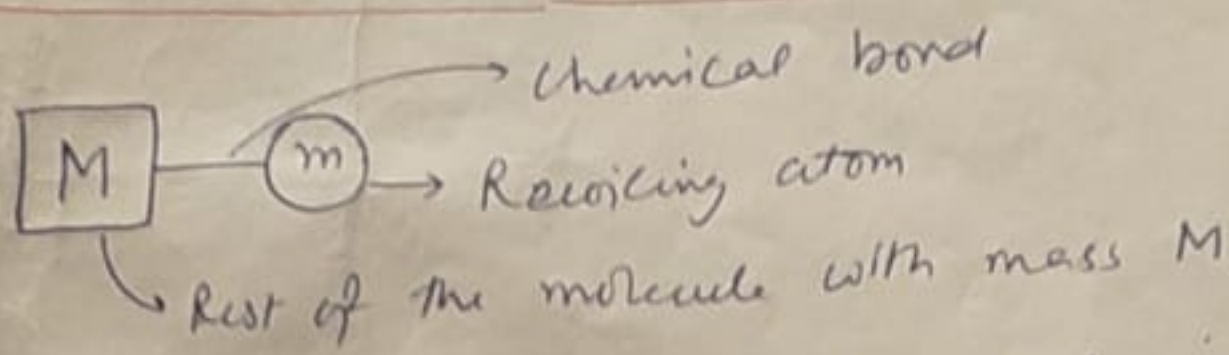 Chemical bond
M
m
Recoiling atom
Rest of the molecule with mass M